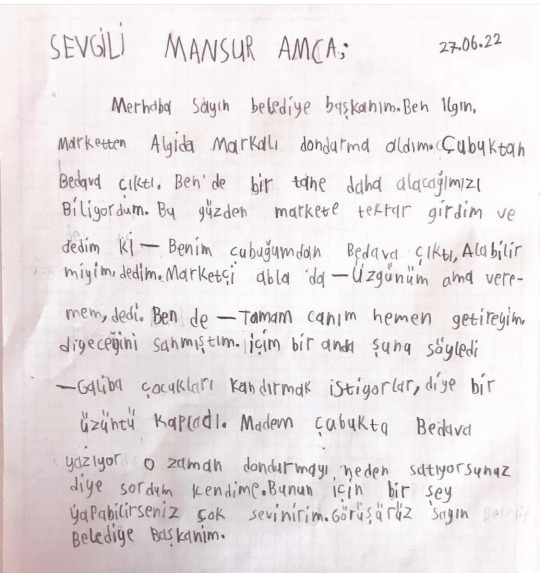 SEVGİLİ MANSUR AMCA;
27.06.22
Merhaba Sayın belediye başkanım. Ben Ilgın.
Marketten Algida Markalı dondurma aldım. Çubuktan
Bedava çıktı. Ben'de bir tane daha alacağımızı
Biliyordum. Bu yüzden markete tekrar girdim ve
dedim ki — Benim çubuğumdan Bedava çıktı, Alabilir
miyim, dedim. Marketçi abla 'da — Üzgünüm ama vere-
mem, dedi. Ben de — Tamam canım hemen getireyim.
diyeceğini sanmıştım. İçim bir anda şuna söyledi
— Galiba çocukları kandırmak istiyorlar, diye bir
üzüntü kapladı. Madem çubukta Bedava
yazıyor o zaman dondurmayı neden satıyorsunuz
diye sordum kendime. Bunun için bir sey
yapabilirseniz çok sevinirim. Görüşürüz sayın
Belediye Başkanim.